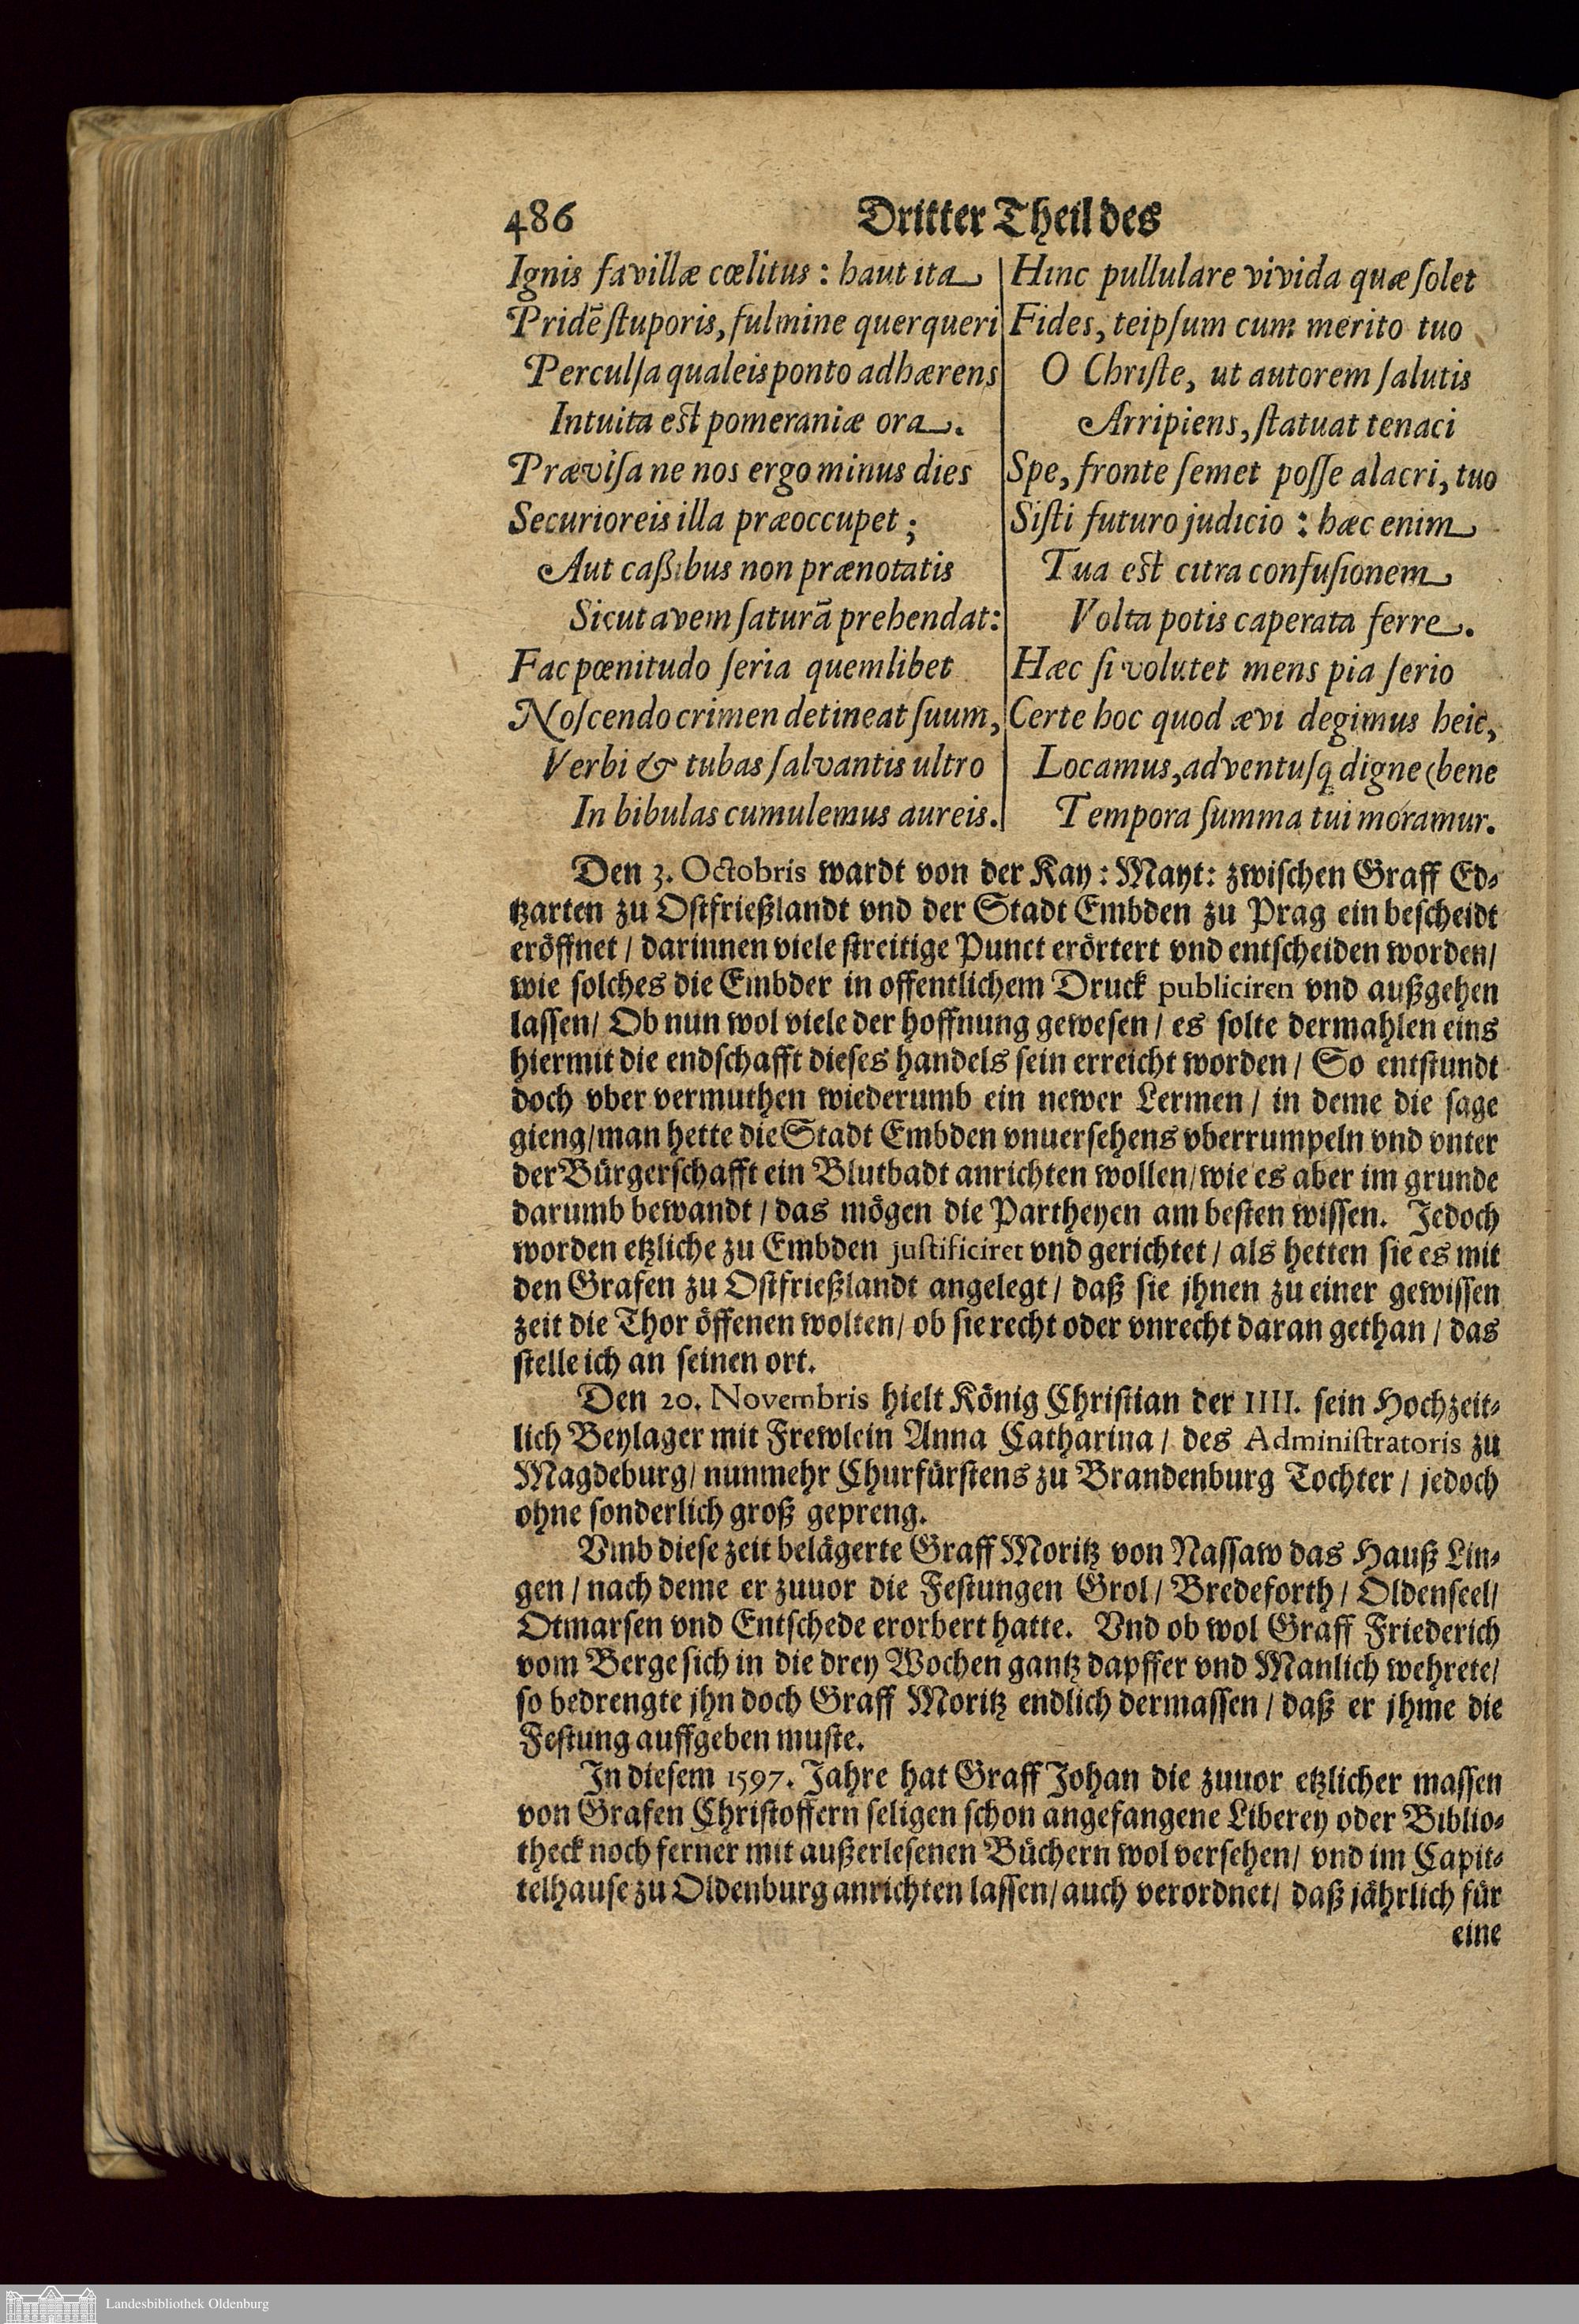 486
Dritter Theil des
Ignis favillæ cœlitus : haut ita
Pridẽ ſtuporis, fulmine querqueri
Perculſa qualeis ponto adhærens
Intuita eſt pomeraniæ ora.
Præviſa ne nos ergo minus dies
Securioreis illa præoccupet ;
Aut caßibus non prænotatis
Sicut avem ſaturã prehendat:
Fac pœnitudo ſeria quemlibet
Noſcendo crimen detineat ſuum,
Verbi & tubas ſalvantis ultro
In bibulas cumulemus aureis.
Hinc pullulare vivida quæ ſolet
Fides, teipſum cum merito tuo
O Chriſte, ut autorem ſalutis
Arripiens, ſtatuat tenaci
Spe, fronte ſemet poſſe alacri, tuo
Siſti futuro judicio : hæc enim
Tua eſt citra confuſionem
Volta potis caperata ferre.
Hæc ſi volutet mens pia ſerio
Certe hoc quod ævi degimus heic,
Locamus, adventuſq́ digne (bene
Tempora ſumma tui moramur.
Den 3. Octobris wardt von der Kay: Mayt: zwiſchen Graff Ed⸗
tzarten zu Oſtfrießlandt vnd der Stadt Embden zu Prag ein beſcheidt
eröffnet / darinnen viele ſtreitige Punct erörtert vnd entſcheiden worden/
wie ſolches die Embder in offentlichem Druck publiciren vnd außgehen
laſſen/ Ob nun wol viele der hoffnung geweſen / es ſolte dermahlen eins
hiermit die endſchafft dieſes handels ſein erreicht worden / So entſtundt
doch vber vermuthen wiederumb ein newer Lermen / in deme die ſage
gieng/man hette die Stadt Embden vnuerſehens vberrumpeln vnd vnter
der Bürgerſchafft ein Blutbadt anrichten wollen/wie es aber im grunde
darumb bewandt / das mögen die Partheyen am beſten wiſſen. Jedoch
worden etzliche zu Embden juſtificiret vnd gerichtet / als hetten ſie es mit
den Grafen zu Oſtfrießlandt angelegt / daß ſie jhnen zu einer gewiſſen
zeit die Thor öffenen wolten/ ob ſie recht oder vnrecht daran gethan / das
ſtelle ich an ſeinen ort.
Den 20. Novembris hielt König Chriſtian der IIII. ſein Hochzeit⸗
lich Beylager mit Frewlein Anna Catharina / des Adminiſtratoris zu
Magdeburg/ nunmehr Churfürſtens zu Brandenburg Tochter / jedoch
ohne ſonderlich groß gepreng.
Vmb dieſe zeit belägerte Graff Moritz von Naſſaw das Hauß Lin⸗
gen / nach deme er zuuor die Feſtungen Grol / Bredeforth / Oldenſeel/
Otmarſen vnd Entſchede erorbert hatte. Vnd ob wol Graff Friederich
vom Berge ſich in die drey Wochen gantz dapffer vnd Manlich wehrete/
ſo bedrengte jhn doch Graff Moritz endlich dermaſſen / daß er jhme die
Feſtung auffgeben muſte.
In dieſem 1597. Jahre hat Graff Johan die zuuor etzlicher maſſen
von Grafen Chriſtoffern ſeligen ſchon angefangene Liberey oder Biblio⸗
theck noch ferner mit außerleſenen Büchern wol verſehen/ vnd im Capit⸗
telhauſe zu Oldenburg anrichten laſſen/ auch verordnet/ daß jährlich für
eine
Landesbibliothek Oldenburg